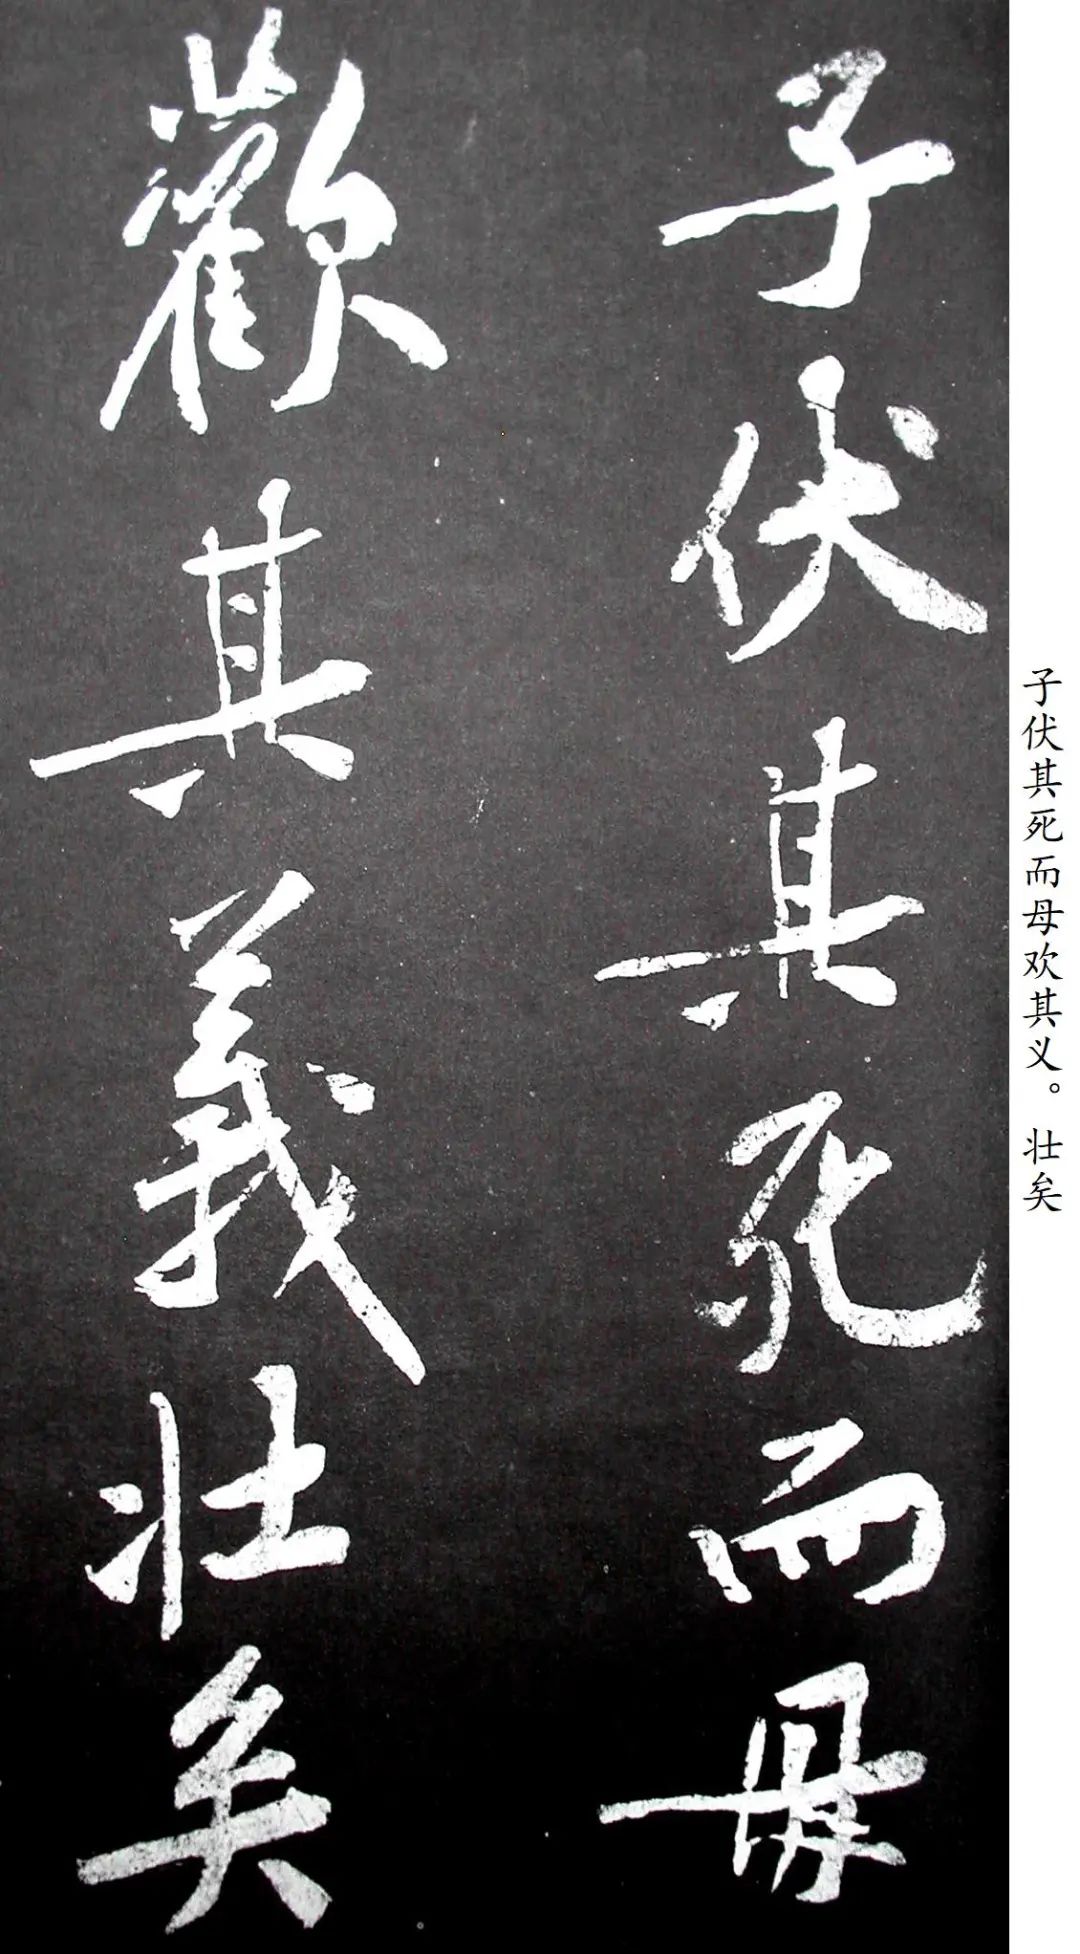 子伏其死而母
歡其義壯矣
子伏其死而母欢其义。壮矣